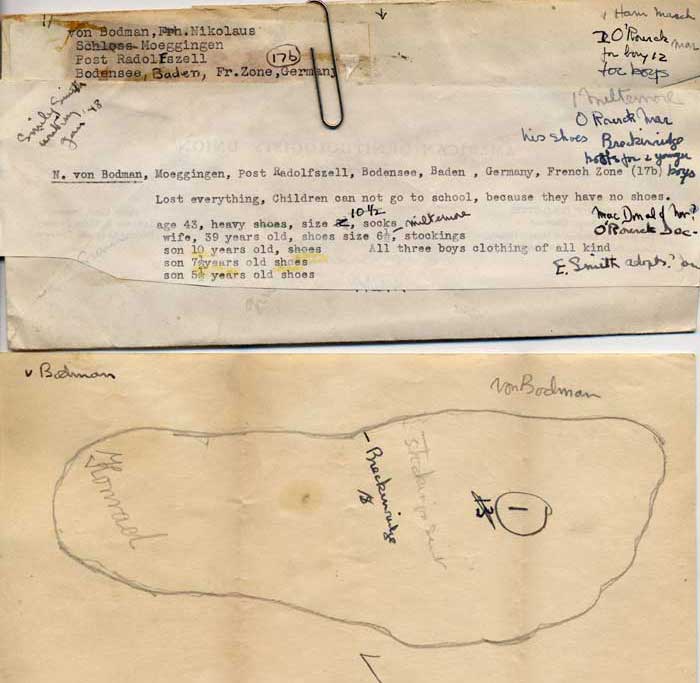 von Bodman, Frh. Nikolaus
Schloss Moeggingen
Post Radolfszell
(17b)
Bodensee, Baden, Fr. Zone, Germany
Emily Smith
writing
Jan '48
v Ham March
O'Rourck Mac
for boy 12
for boys
O Rourck Mac
his shoes Breckinridge
boots for 2 younger
boys
N. von Bodman, Moeggingen, Post Radolfszell, Bodensee, Baden , Germany, French Zone (17b)
Lost everything, Children can not go to school, because they have no shoes.
age 43, heavy shoes, size 10 1/2, socks
wife, 39 years old, shoes size 6½, stockings
son 10 years old, shoes All three boys clothing of all kind
son 7½years old shoes
son 5½ years old shoes
O'Rourck Dec-
E. Smith adopts?
v Bodman
von Bodman
Konrad
- Breckinridge
stockings sent
1